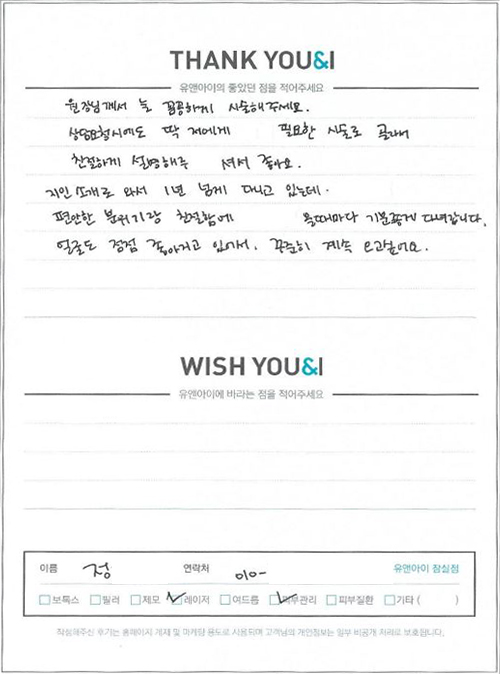 THANK YOU&I
유앤아이의 좋았던 점을 적어주세요
원장님께서 늘 꼼꼼하게 시술해주세요.
상담요청시에도 딱 저에게 필요한 시술로 골라서
친절하게 설명해주 셔서 좋아요.
지인 소개로 와서 1년 넘게 다니고 있는데.
편안한 분위기랑 친절함에 올때마다 기분좋게 다녀갑니다.
얼굴도 점점 좋아지고 있어서, 꾸준히 계속 오고싶어요.
WISH YOU&I
유앤아이에 바라는 점을 적어주세요
이름 정 연락처 010- 유앤아이 잠실점
보톡스 필러 제모 레이저 여드름 피부관리 피부질환 기타 ( )
작성해주신 후기는 홈페이지 게재 및 마케팅 용도로 사용되며 고객님의 개인정보는 일부 비공개 처리로 보호합니다.